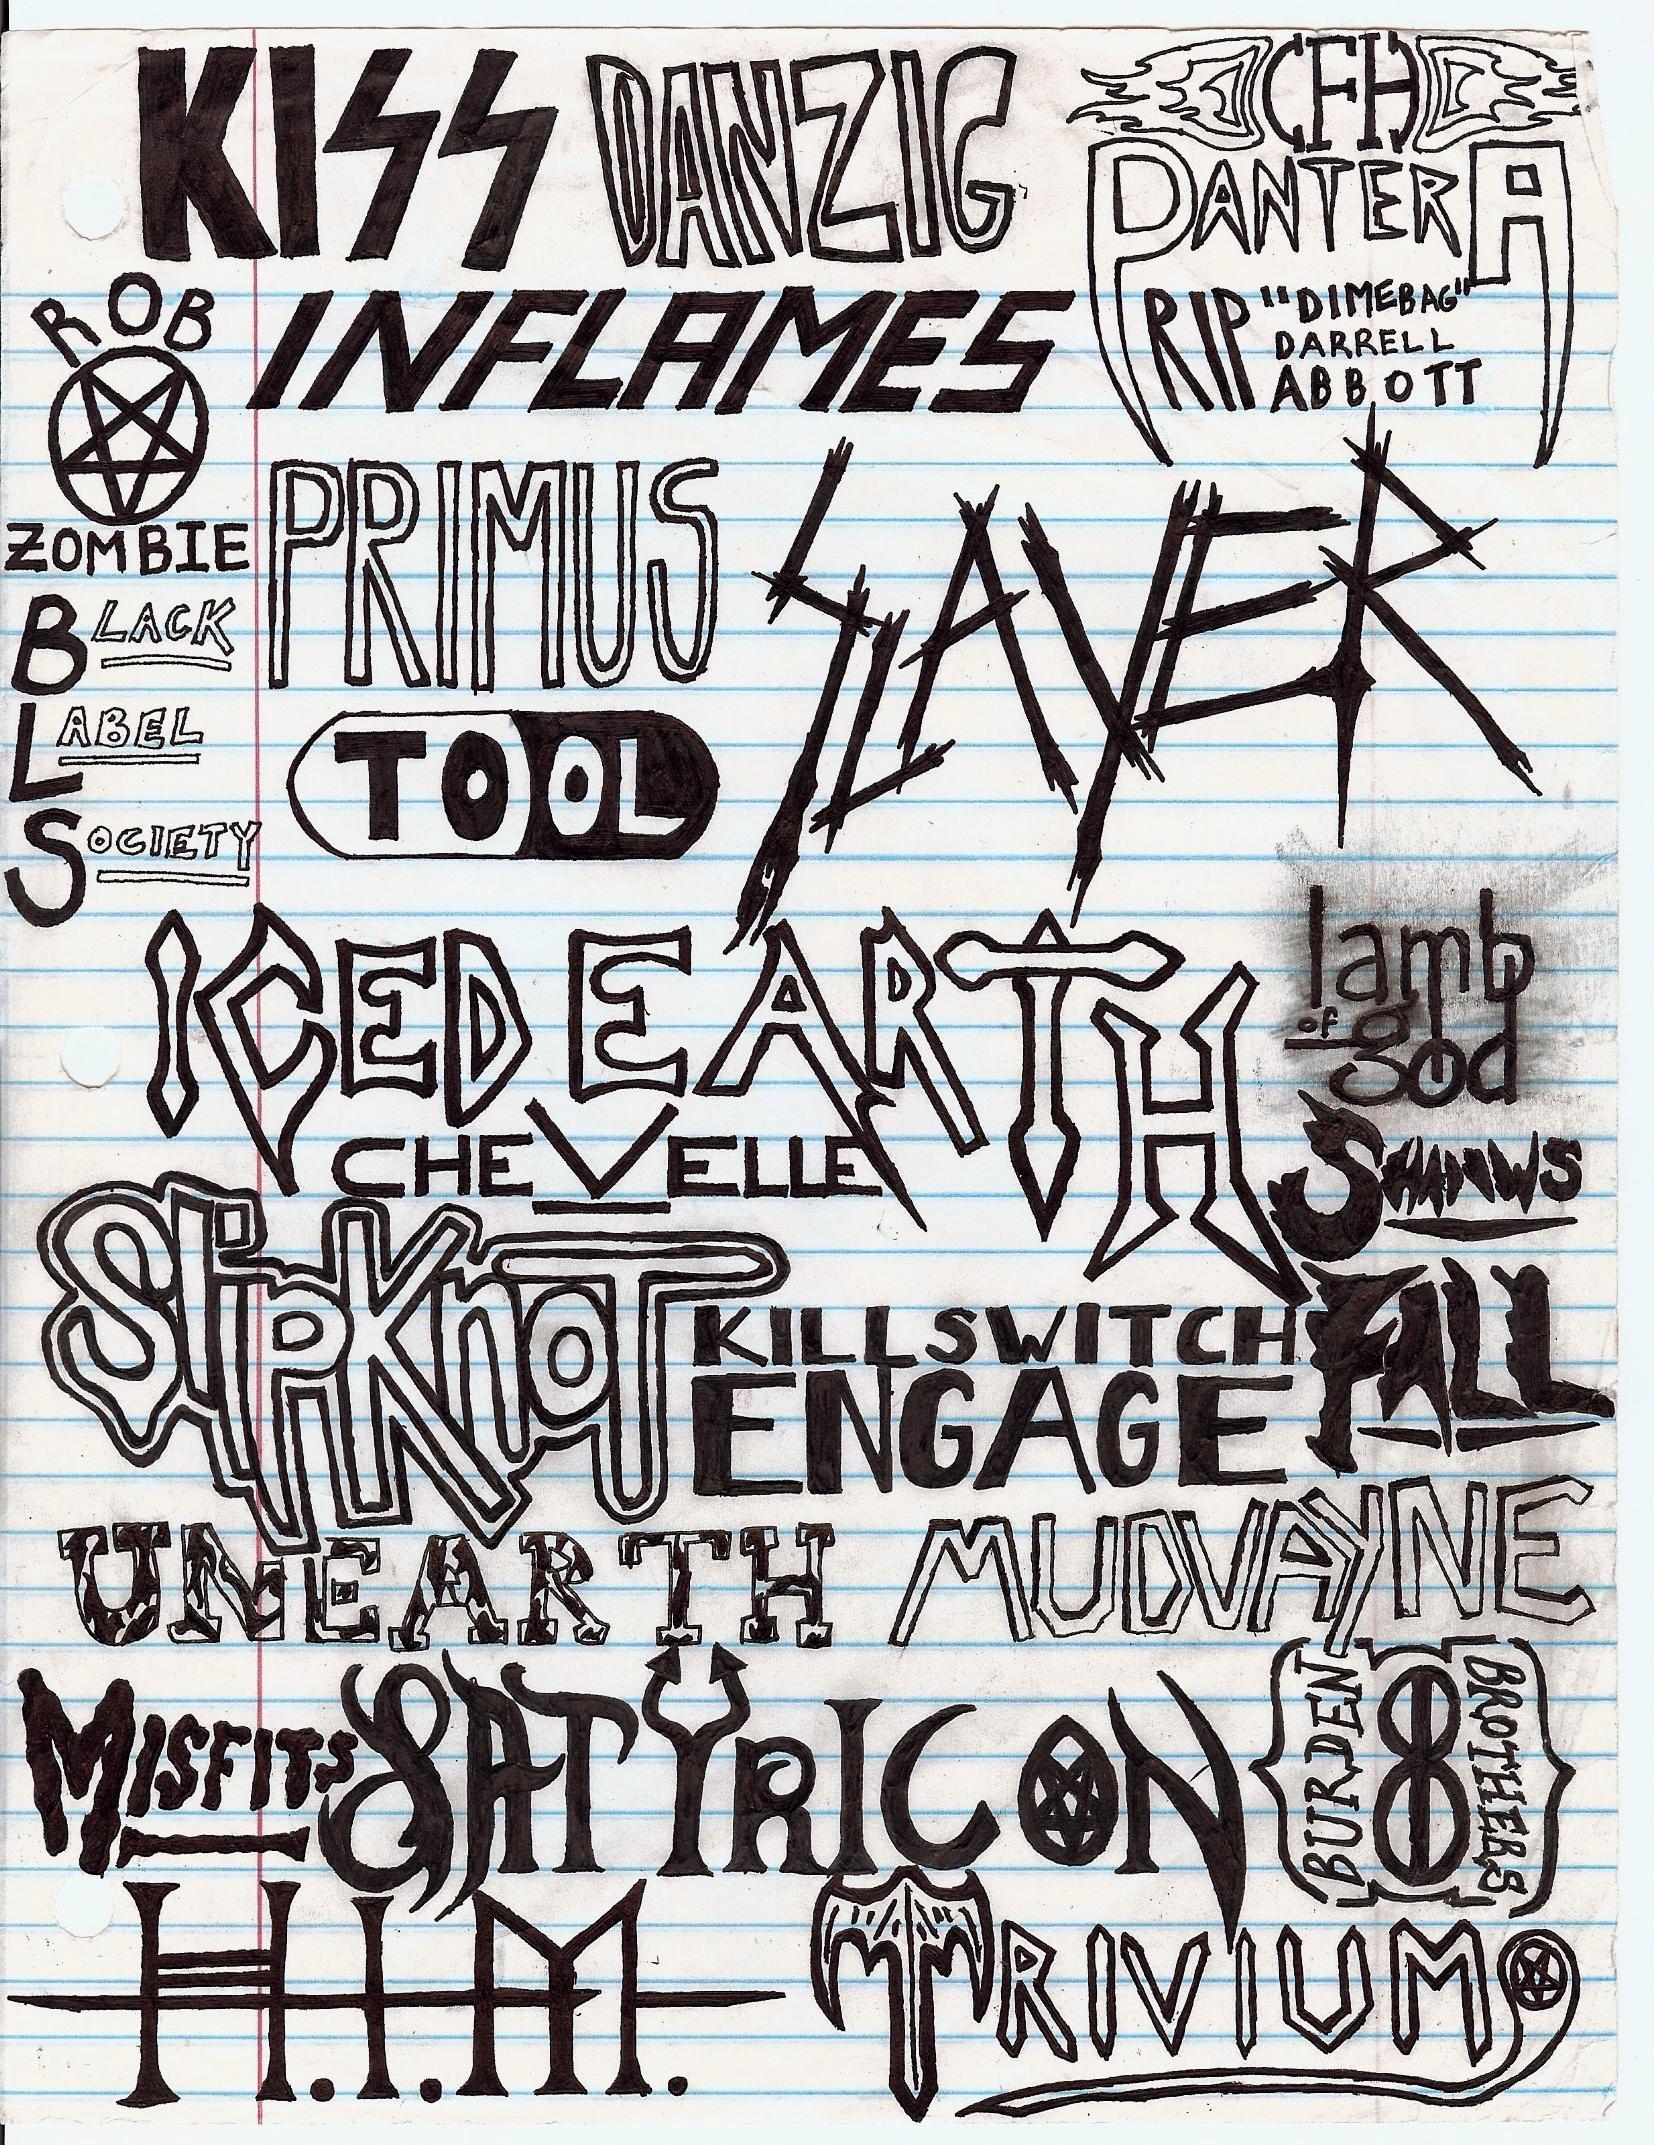 KISS
DANZIG
CFH
PANTERA
RIP "DIMEBAG"
DARRELL
ABBOTT
ROB
ZOMBIE
INFLAMES
PRIMUS
SLAYER
BLACK
LABEL
SOCIETY
TOOL
ICED EARTH
lamb
of god
CHEVELLE
SHADOWS
FALL
SlipKnoT
KILLSWITCH
ENGAGE
UNEARTH
MUDVAYNE
MISFITS
SATYRICON
BURDEN
BROTHERS
H.I.M.
TRIVIUM